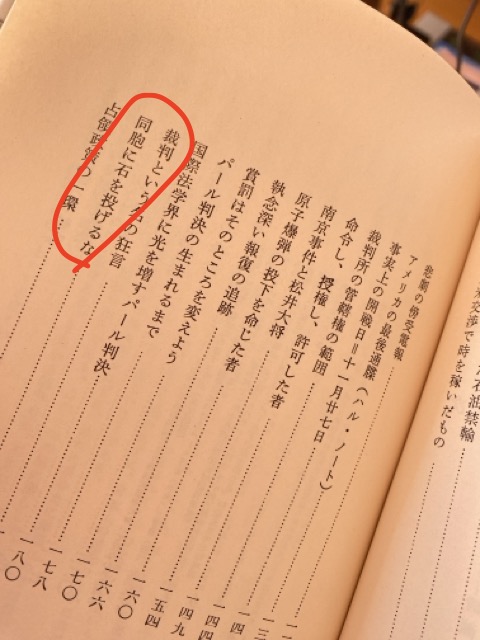 石油禁輸
交渉で時を稼いだもの
の傍受電報
アメリカの最後通牒(ハル・ノート)
事実上の開戦日=十一月廿七日……一
裁判所の管轄権の範囲……一三
命令し、授権し、許可した者……一四
南京事件と松井大将……一四四
原子爆弾の投下を命じた者……一四九
執念深い報復の追跡……一五四
賞罰はそのところを変えよう……一六〇
パール判決の生まれるまで……一六六
国際法学界に光を増すパール判決……一七〇
裁判という名の狂言……一七八
同胞に石を投げるな……一八〇
占領政策の一環……